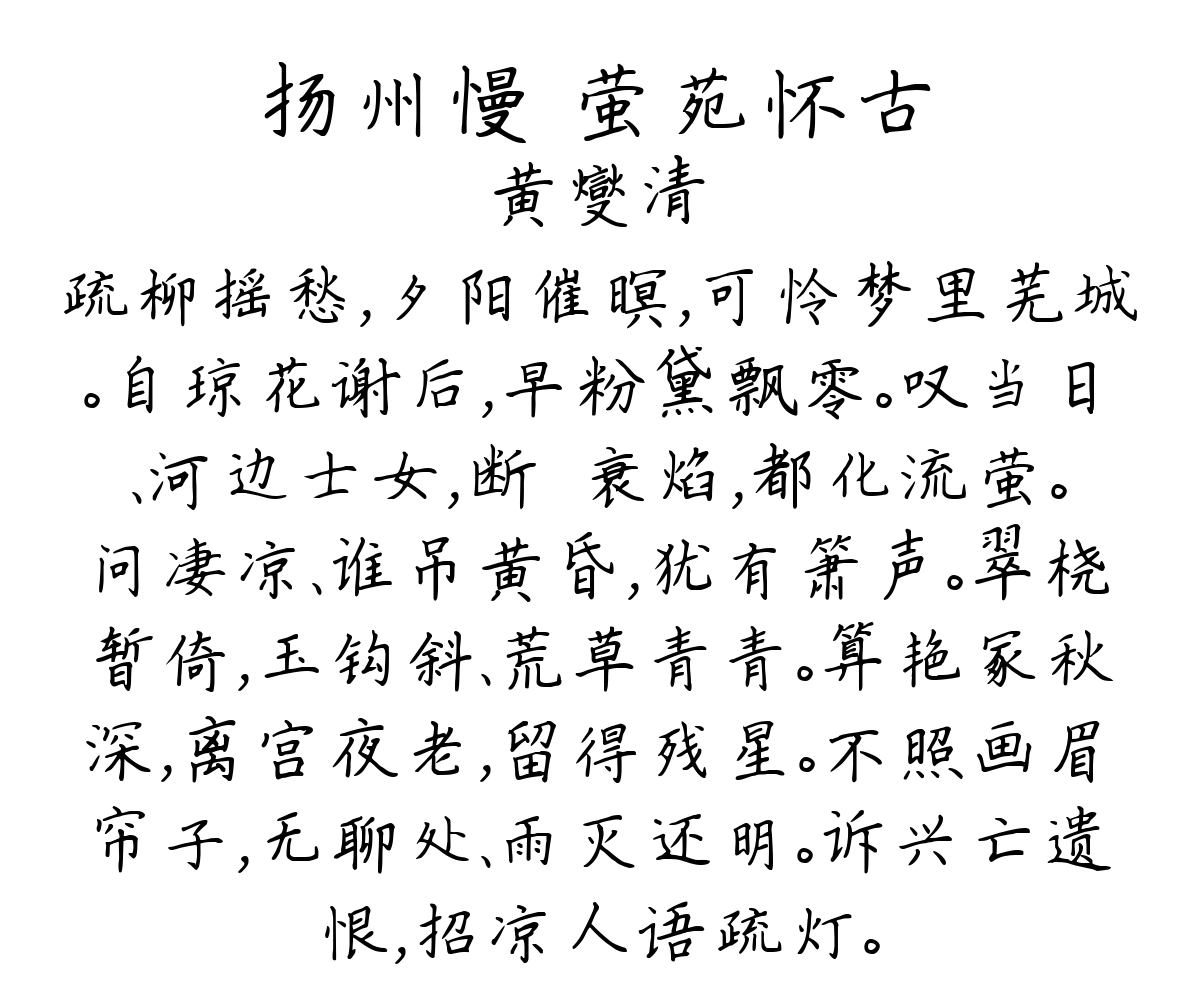 扬州慢 萤苑怀古
黄燮清
疏柳摇愁,夕阳催暝,可怜梦里芜城
。自琼花谢后,早粉黛飘零。叹当日
、河边士女,断 衰焰,都化流萤。
问凄凉、谁吊黄昏,犹有箫声。翠桡
暂倚,玉钩斜、荒草青青。算艳冢秋
深,离宫夜老,留得残星。不照画眉
帘子,无聊处、雨灭还明。诉兴亡遗
恨,招凉人语疏灯。